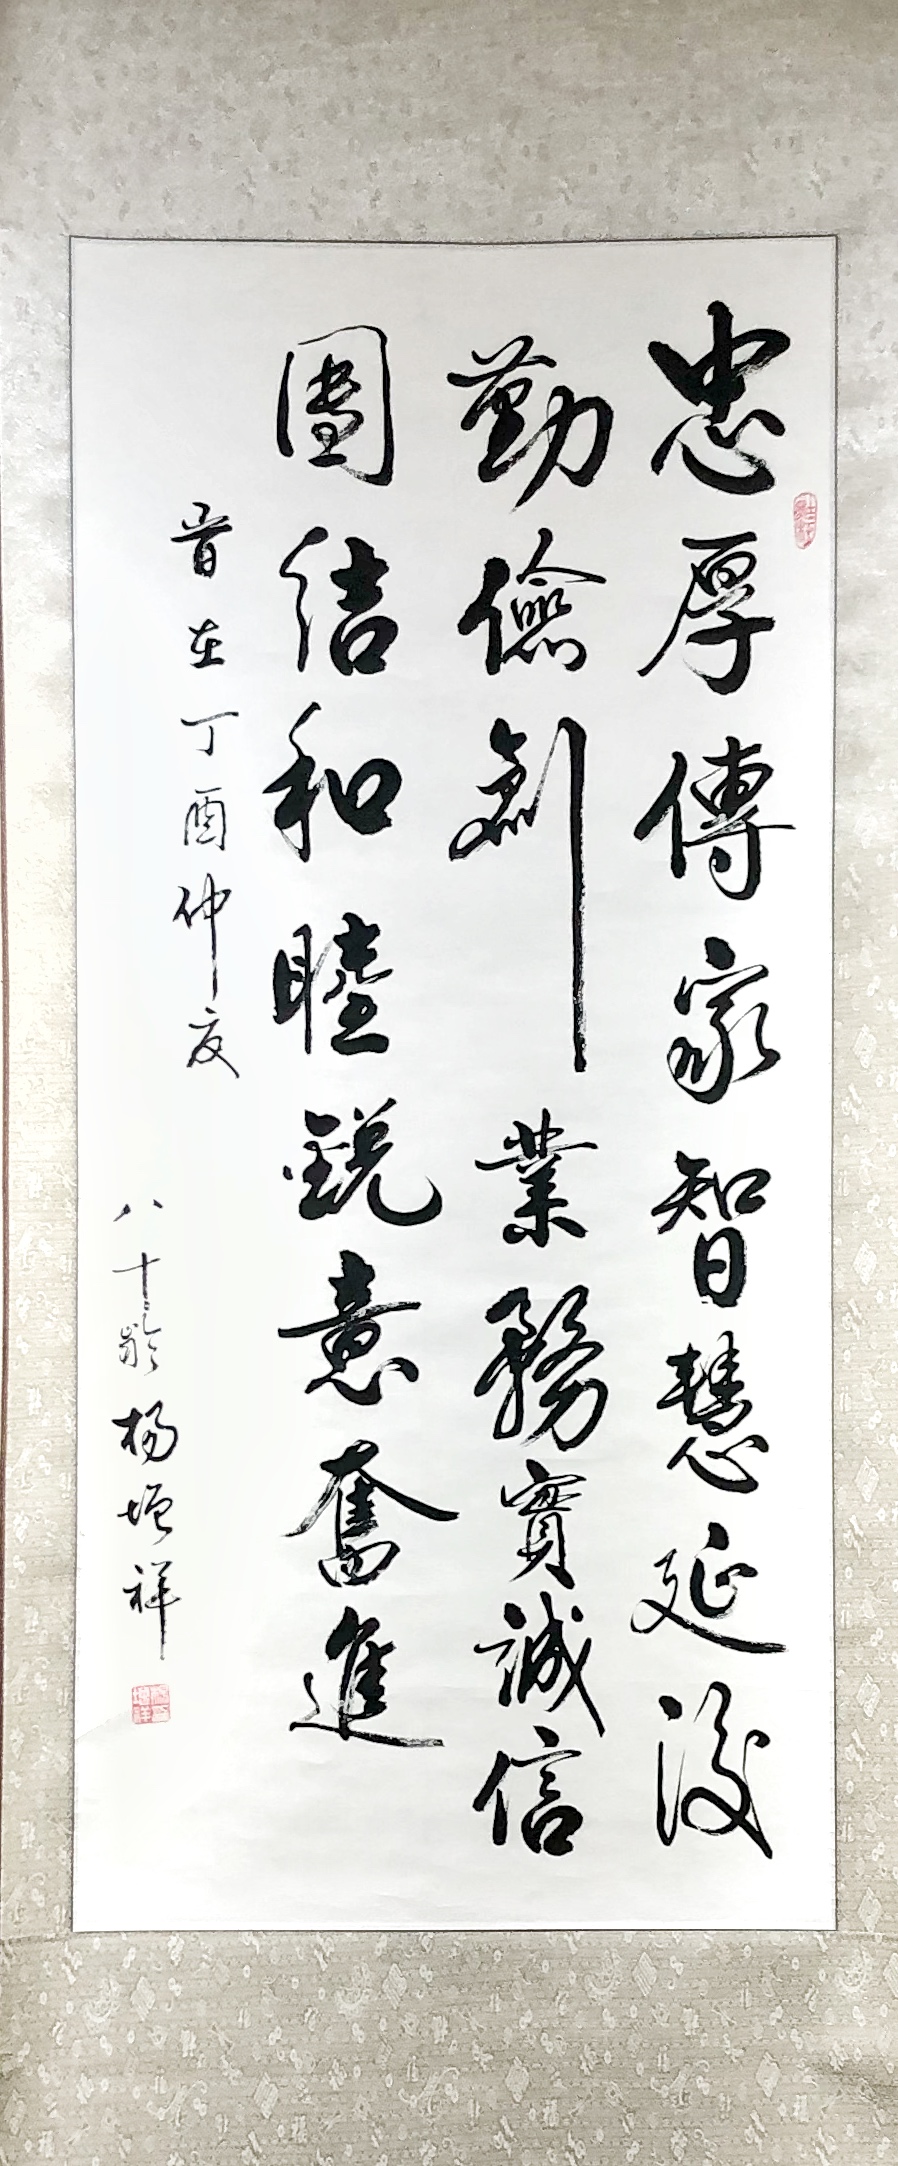 忠厚傳家智慧延後
勤儉創業務實誠信
團結和睦銳意奮進
昔在丁酉仲夏
八十齡楊增祥